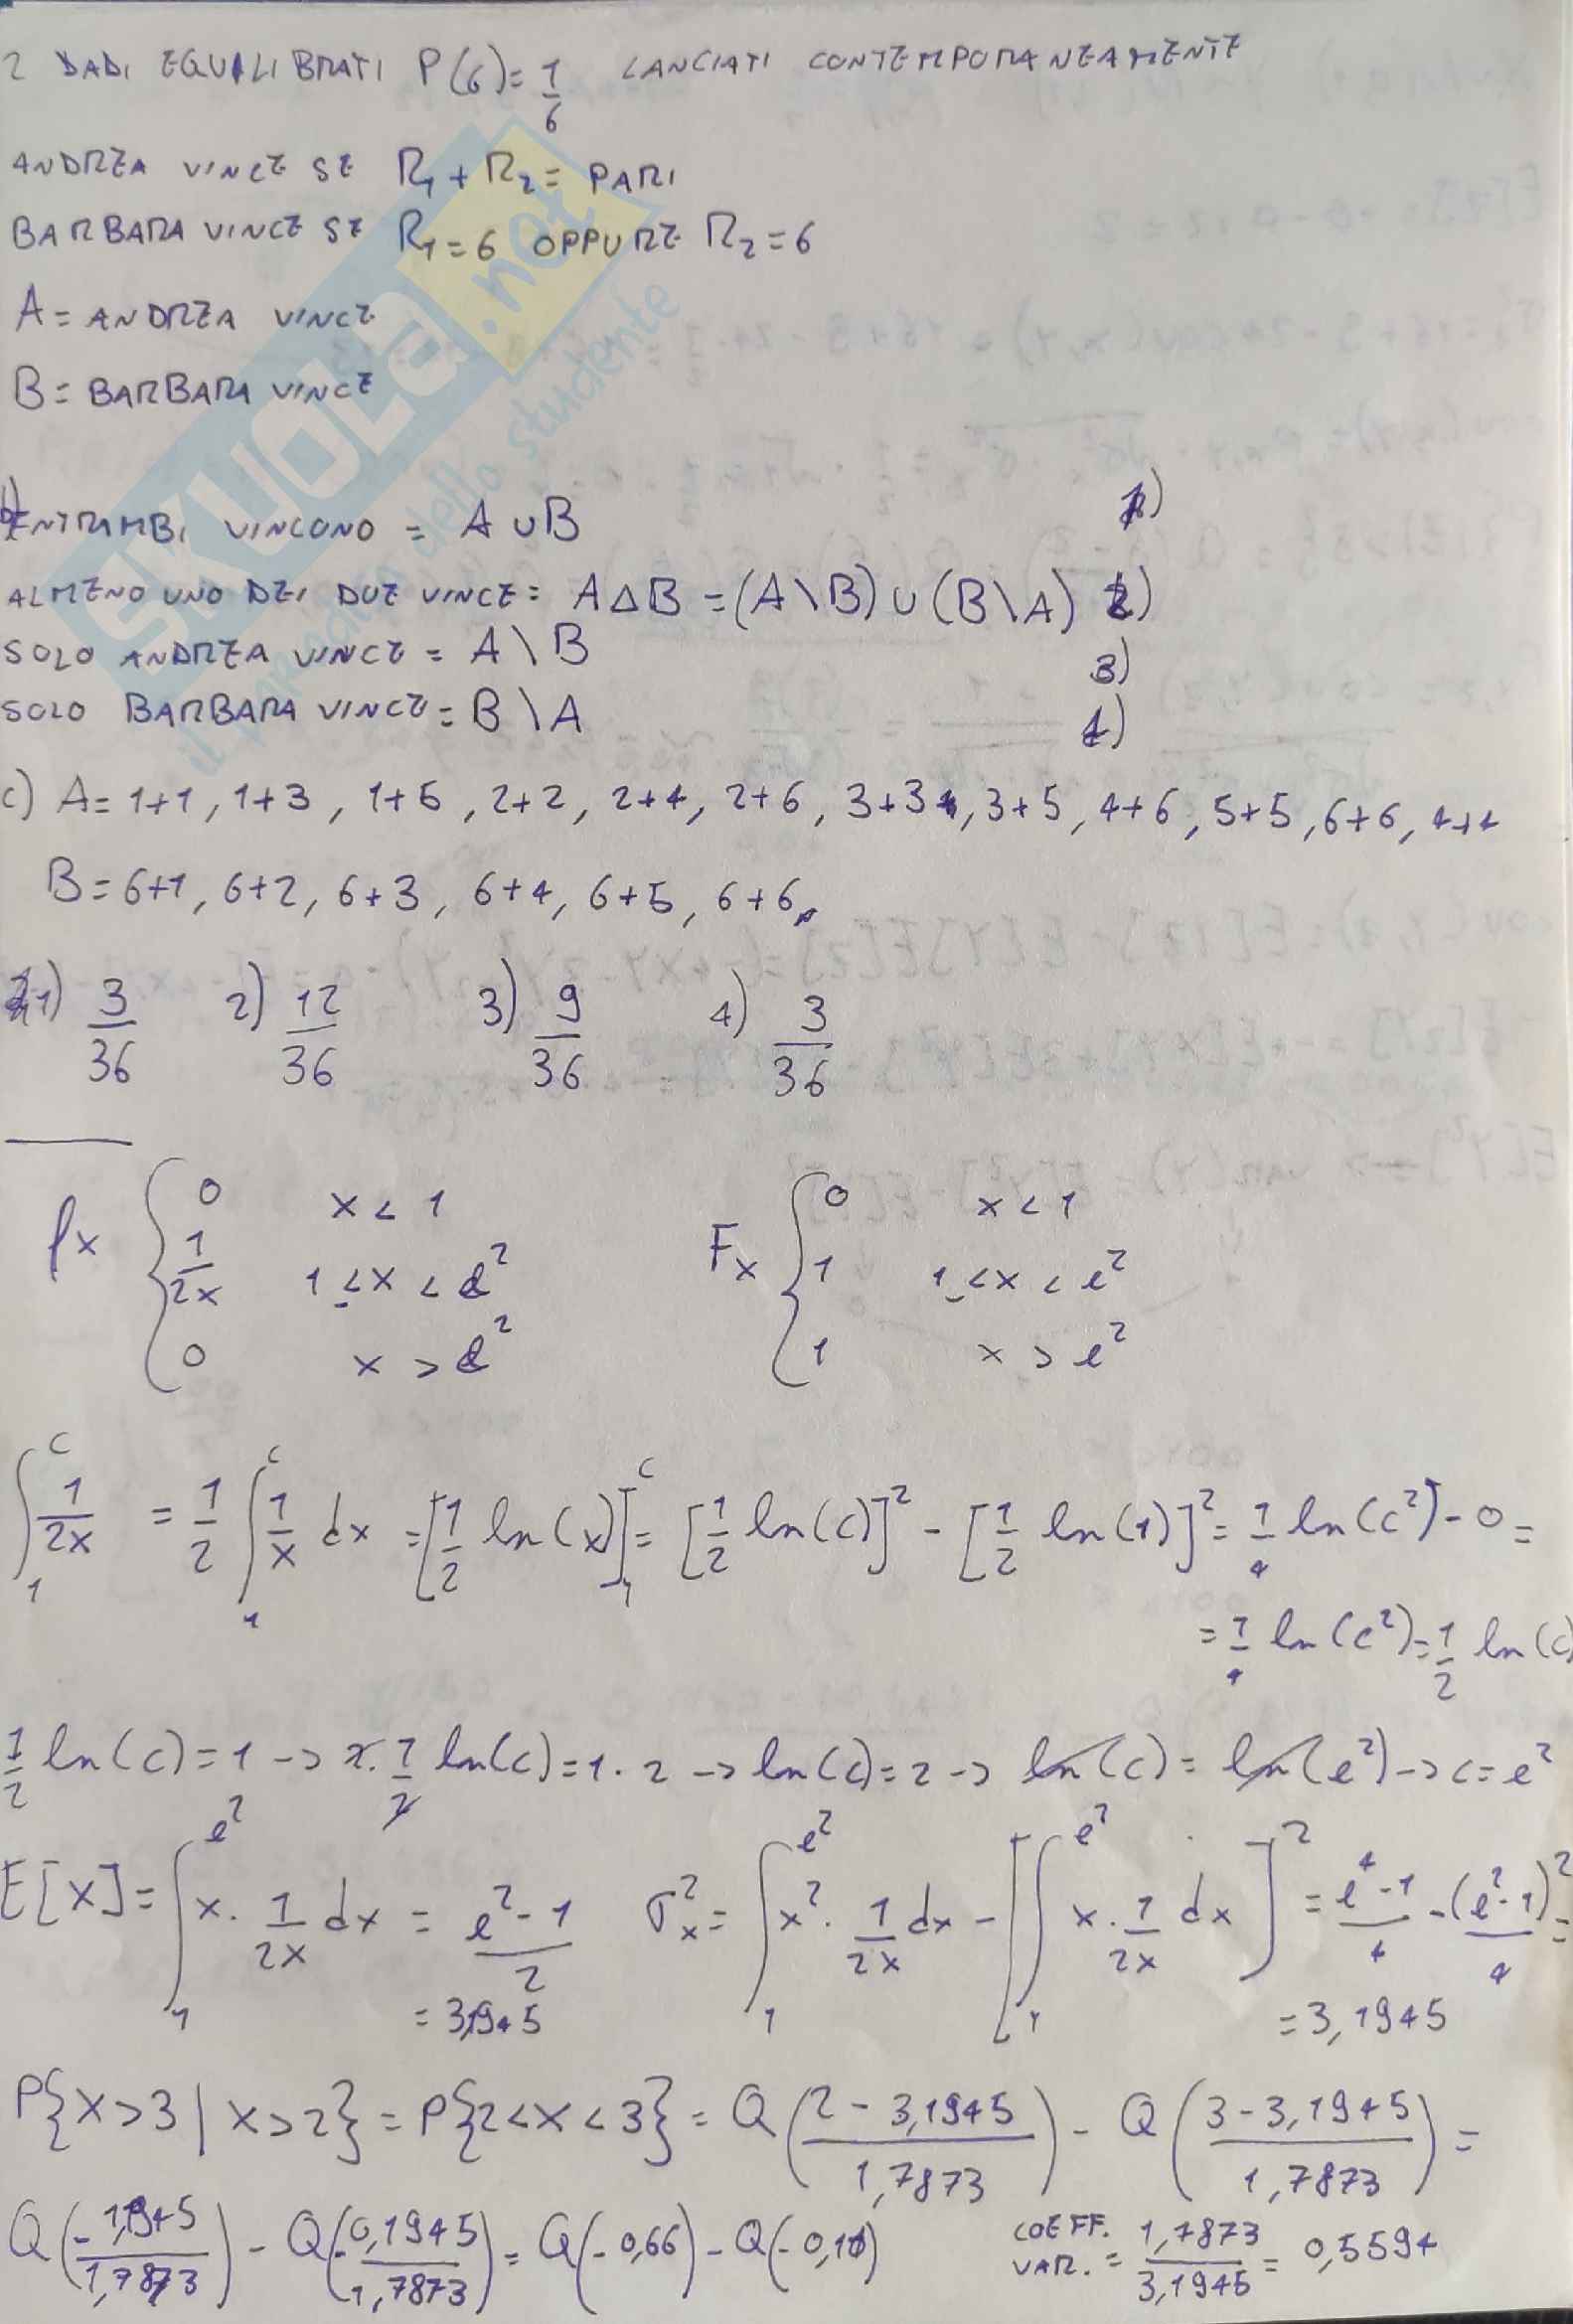 2 DADI EQUILIBRATI P(6)=1/6 LANCIATI CONTEMPORANEAMENTE
ANDREA VINCE SE R1+R2= PARI
BARBARA VINCE SE R1=6 OPPURE R2=6
A= ANDREA VINCE
B= BARBARA VINCE
b) ENTRAMBI VINCONO = A∪B 1)
ALMENO UNO DEI DUE VINCE= A△B=(A\B)∪(B\A) 2)
SOLO ANDREA VINCE = A\B 3)
SOLO BARBARA VINCE= B\A 4)
c) A= 1+1, 1+3, 1+5, 2+2, 2+4, 2+6, 3+3, 3+5, 4+6, 5+5, 6+6, 4+4
B=6+1, 6+2, 6+3, 6+4, 6+5, 6+6
1) 3/36 2) 12/36 3) 9/36 4) 3/36
fx { 0 x<1 Fx { 0 x<1
1/2x 1≤x<e² 1 1≤x<e²
0 x>e² 1 x>e²
∫₁ᶜ 1/2x = 1/2 ∫₁ᶜ 1/x dx =[1/2 ln(x)]₁ᶜ= [1/2 ln(c)]² - [1/2 ln(1)]²= 1/4 ln(c²)-0=
=1/4 ln(c²)=1/2 ln(c)
1/2 ln(c)=1 -> 2·1/2 ln(c)=1·2 -> ln(c)=2 -> ln(c)= ln(e²) -> c=e²
E[x]=∫₁^e² x·1/2x dx = e²-1/2 σx²= ∫₁^e² x²·1/2x dx - [∫₁^e² x·1/2x dx]² = e⁴-1/4 - (e²-1)²/4 =
= 3,1945 =3,1945
P{X>3|X>2} = P{2<X<3} = Q(2-3,1945/1,7873) - Q(3-3,1945/1,7873) =
Q(-1,1945/1,7873) - Q(-0,1945/1,7873) = Q(-0,66) - Q(-0,11) COEFF. VAR. = 1,7873/3,1945 = 0,5594
SKUOLA.net
il paradiso dello studente